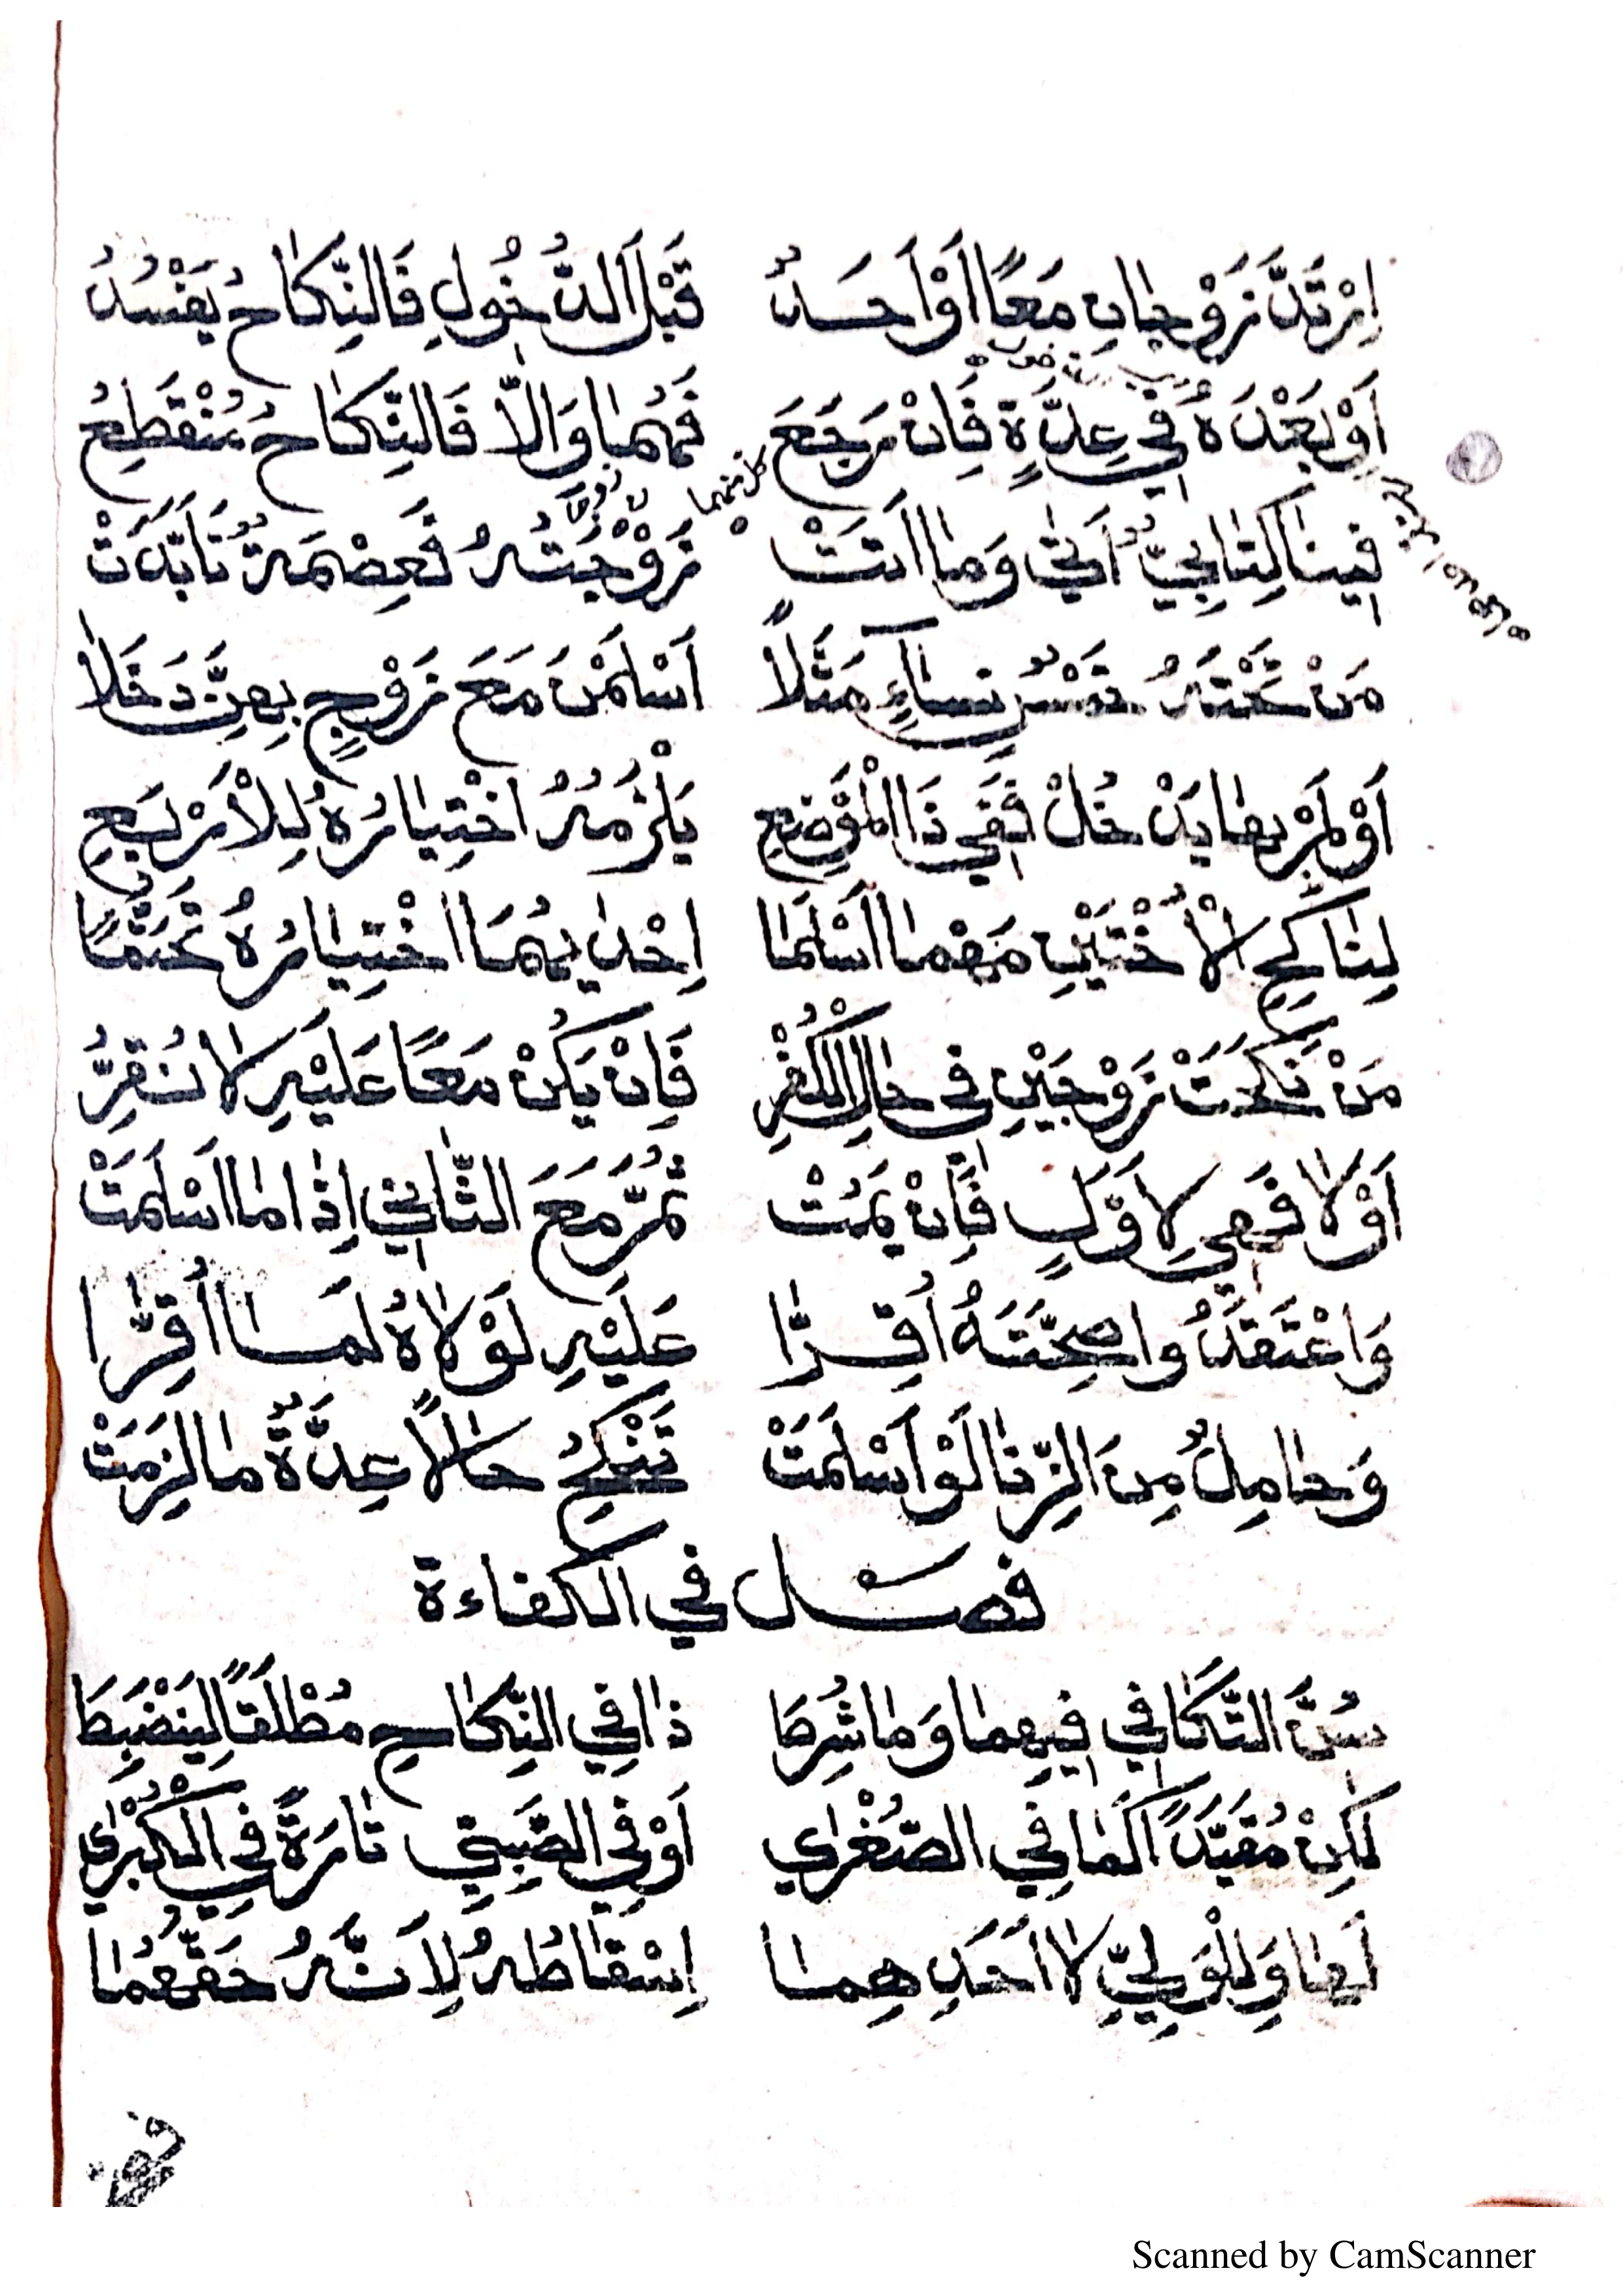 اِرْتَدَّ زَوْجَانِ مَعًا اَوْ اَحَدٌ قَبْلَ الدُّخُولِ فَالنِّكَاحُ يَفْسُدُ
اَوْ بَعْدَهُ فِي عِدَّةٍ فَاِنْ رَجَعَ فَهُمَا وَاِلَّا فَالنِّكَاحُ مُنْقَطِعُ
كل منهما
فِينَا كِتَابِيٌّ اَتَى وَمَا اَتَتْ زَوْجَتُهُ فَعِصْمَةٌ تَأَبَّدَتْ
مَنْ تَحْتَهُ خَمْسُ نِسَاءٍ مَثَلًا اَسْلَمْنَ مَعَ زَوْجٍ بِهِنَّ دَخَلَا
اَوْ لَمْ بِهَا يَدْخُلْ فَفِي ذَا الْمَوْضِعِ يَلْزَمُهُ اخْتِيَارُهُ لِلْأَرْبَعِ
لِنَاكِحِ الْأُخْتَيْنِ مَهْمَا اَسْلَمَا اِحْدَيهُمَا اخْتِيَارُهُ تَحَتَّمَا
مَنْ نَكَحَتْ زَوْجَيْنِ فِي حَالِ الْكُفْرِ فَاِنْ يَكُنْ مَعًا عَلَيْهِ لَا نُقِرُّ
اَوْ لَا فَهِيَ لِاَوَّلٍ فَاِنْ يَمُتْ ثُمَّ مَعَ الثَّانِي اِذَا مَا اَسْلَمَتْ
وَاعْتَقَدُوا صِحَّتَهُ اُقِرَّا عَلَيْهِ لَوْلَاهُ لَمَا اُقِرَّا
وَحَامِلٌ مِنَ الزِّنَا لَوْ اَسْلَمَتْ تَنْكِحُ حَالًا عِدَّةٌ مَا لَزِمَتْ
فصل في الكفاءة
سُنَّ التَّكَافِي فِيهِمَا وَمَا شُرِطَا ذَا فِي النِّكَاحِ مُطْلَقًا لِيَنْضَبِطَا
لٰكِنْ مُقَيَّدًا كَمَا فِي الصُّغْرٰي اَوْ فِي الصَّبِيِّ تَارَةً فِي الْكُبْرٰي
لَهَا وَلِلْوَلِيِّ لَا اَحَدِهِمَا اِسْقَاطُهُ لِاَنَّهُ حَقُّهُمَا
Scanned by CamScanner